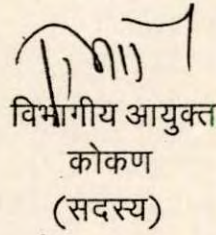 विभागीय आयुक्त
कोकण
(सदस्य)